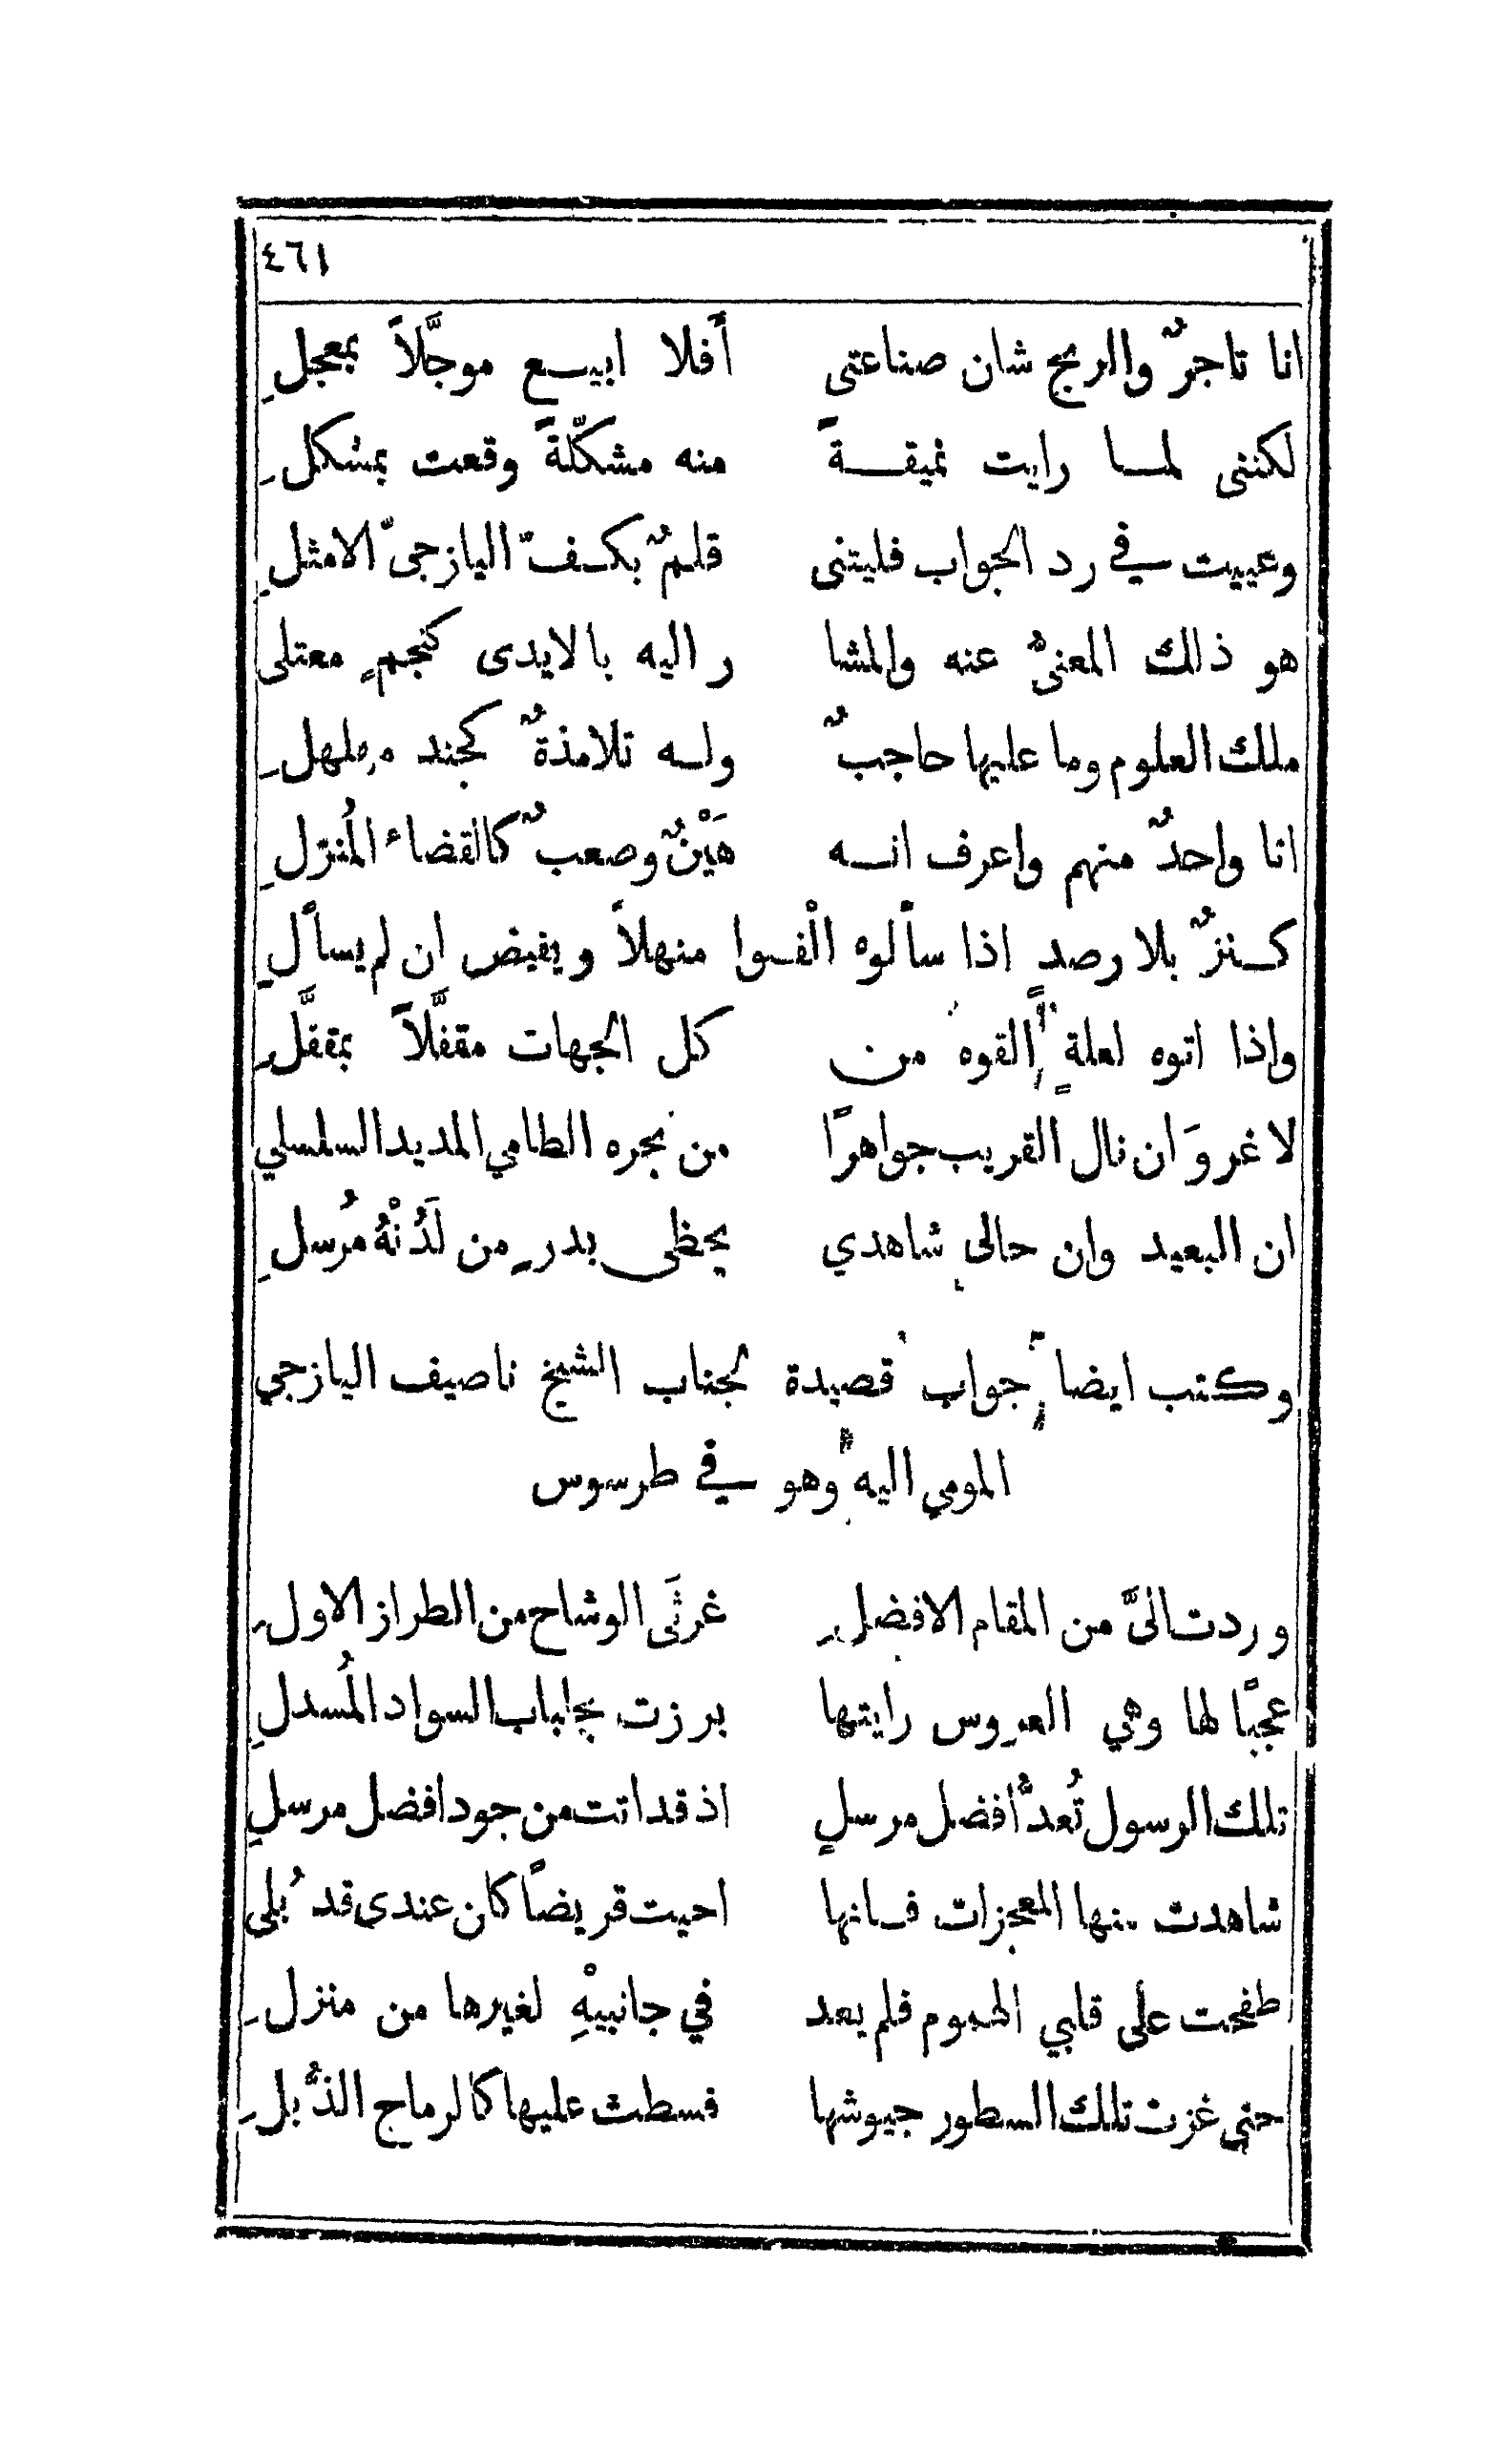 ٤٦١
انا تاجرٌ والربح شان صناعتى أفلا ابيع موجَّلاً بمعجلِ
لكننى لما رايت نميقةً منه مشكّلةً وقعت بمشكلِ
وعييت في رد الجواب فليتنى قلمٌ بكفّ اليازجىّ الامثلِ
هو ذلك المعنىُّ عنه والمشا ر اليه بالايدى كنجمٍ معتلى
ملك العلوم وما عليها حاجبٌ وله تلامذةٌ كجند مهلهلِ
انا واحدٌ منهم واعرف انه هَيْنٌ وصعبٌ كالقضاء المُنزلِ
كنزٌ بلا رصدٍ اذا سألوه الْفوا منهلاً ويفيض ان لم يسألِ
واذا اتوه لعلةٍ القوه من كل الجهات مقفَّلاً بمقفَّلِ
لا غروَ ان نال القريب جواهرًا من بحره الطامي المديد السلسلي
ان البعيد وان حالى شاهدي يحظى بدرٍ من لَدُنْهُ مُرسلِ
وكتب ايضا جواب قصيدة لجناب الشيخ ناصيف اليازجي
المومي اليه وهو في طرسوس
وردت الىَّ من المقام الافضلِ غرثَى الوشاح من الطراز الاولِ
عجبًا لها وهي العروس رايتها برزت بجلباب السواد المُسدلِ
تلك الرسول تُعدُّ أفضل مرسلٍ اذ قد اتت من جود افضل مرسلِ
شاهدت منها المعجزات فانها احيت قريضًا كان عندى قد بُلى
طفحت على قلبي الهموم فلم يعد في جانبيْهِ لغيرها من منزلِ
حتى غزت تلك السطور جيوشها فسطت عليها كالرماح الذُّبلِ